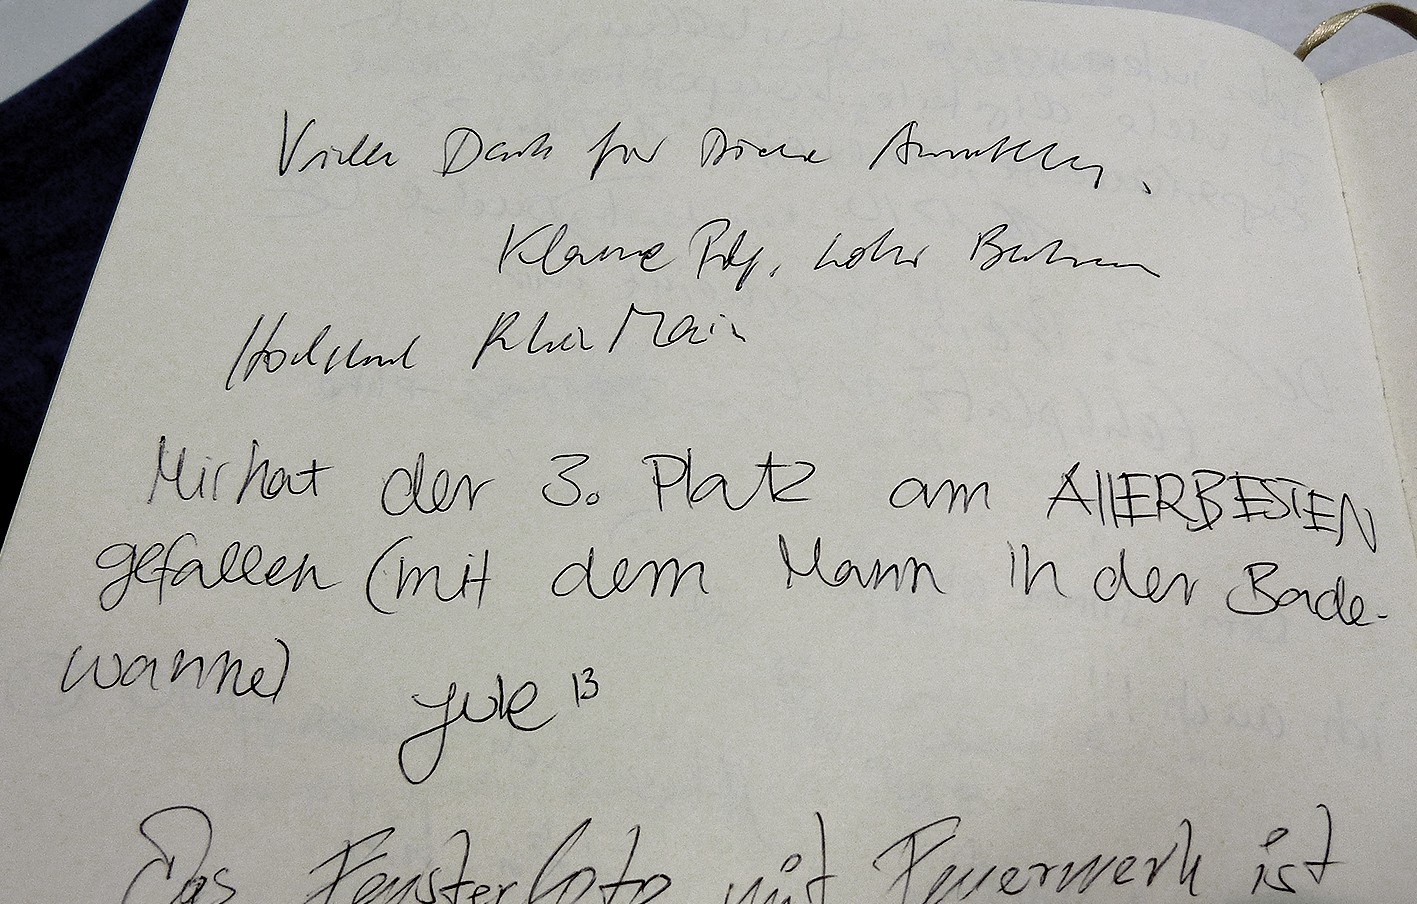 Vielen Dank für diese Ausstellung.
Klasse
Hochschule RheinMain
Mir hat der 3. Platz am AllERBESTEN
gefallen (mit dem Mann in der Bade-
wanne)
Jule 13
Das Fensterfoto mit Feuerwerk ist